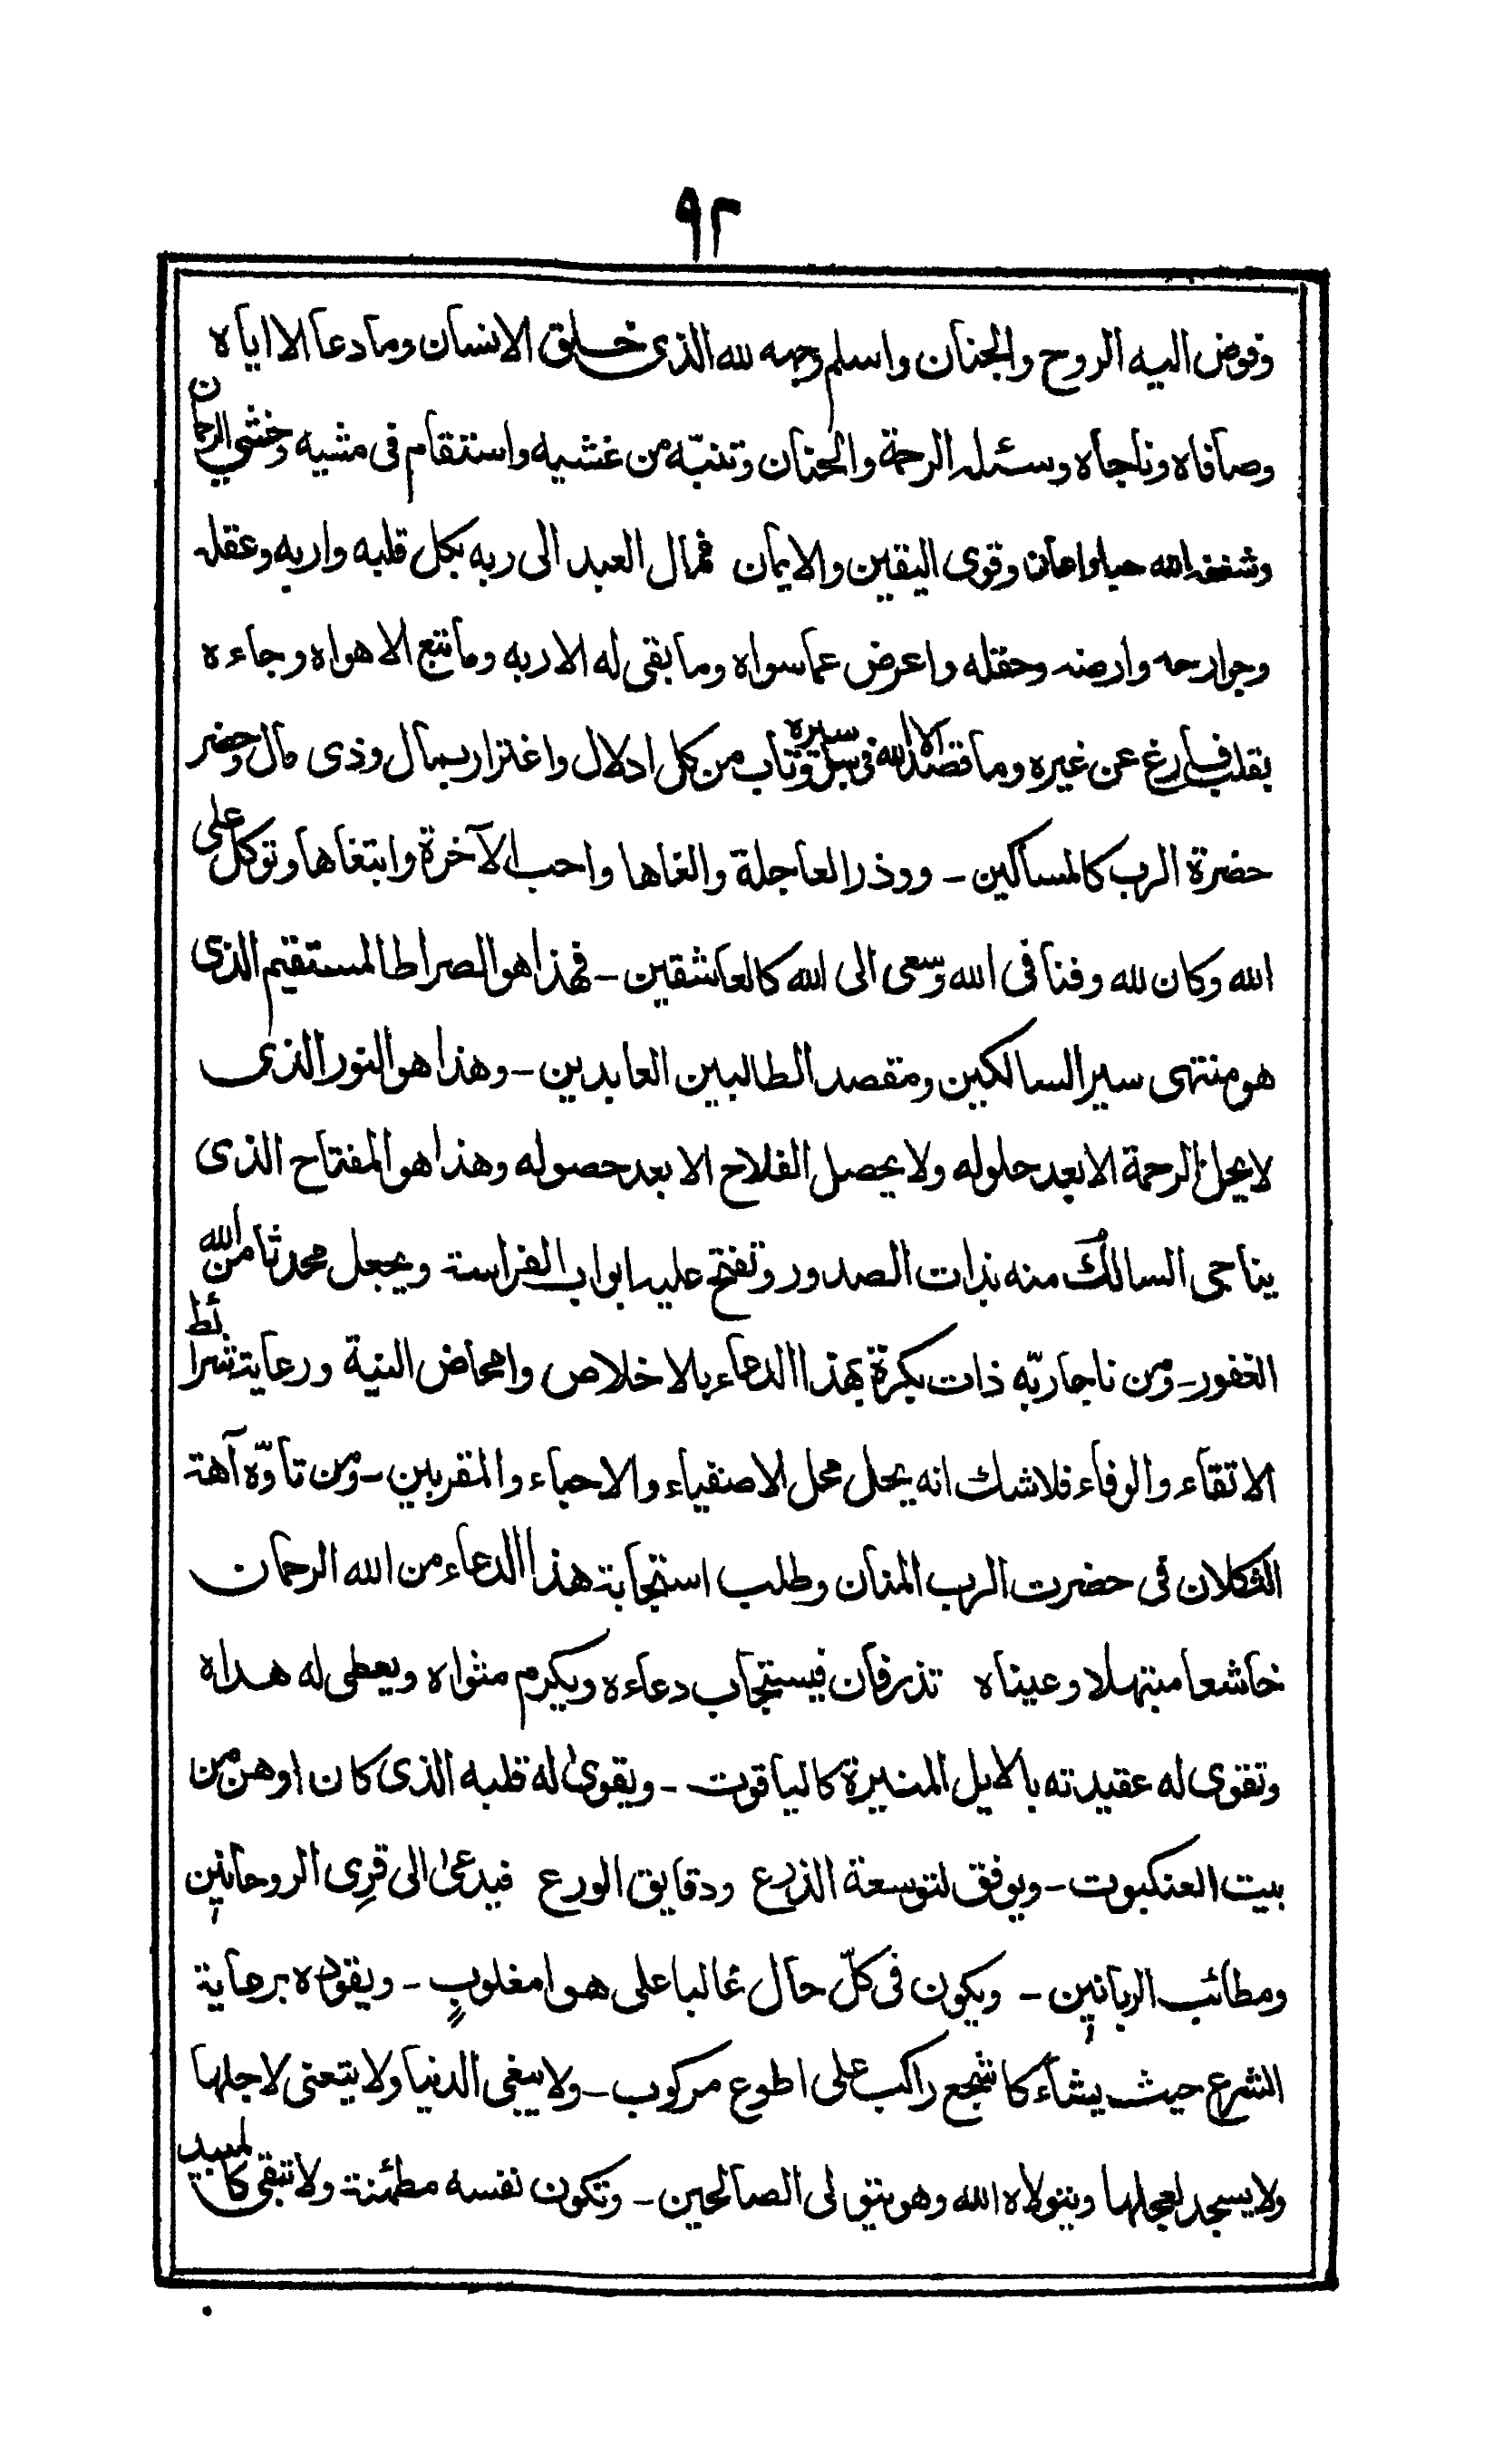 ٩٢
وفوض اليه الروح والجنان واسلم وجهه لله الذى خلق الانسان وما دعا الا اياه
وصافاه وناجاه وسئله الرحمة والحنان وتنبّه من غشيه واستقام فى مشيه وخشي الرحمان
وشغفه الله حبا واعان وقوى اليقين والايمان فمال العبد الى ربه بكل قلبه واربه وعقله
وجوارحه وارضه وحقله واعرض عما سواه وما بقى له الا ربه وما تبع الا هواه وجاءه
بقلب فارغ عن غيره وما قصد الا الله فى سبل سيره وتاب من كل ادلال واغترار بمال وذى مال وحضر
حضرة الرب كالمساكين - ووذر العاجلة والغاها واحب الآخرة وابتغاها وتوكل على
الله وكان لله وفنا فى الله وسعى الى الله كالعاشقين - فهذا هو الصراط المستقيم الذى
هو منتهى سير السالكين ومقصد الطالبين العابدين - وهذا هو النور الذى
لا يحل الرحمة الا بعد حلوله ولا يحصل الفلاح الا بعد حصوله وهذا هو المفتاح الذى
يناجى السالكُ منه بذات الصدور وتفتح عليه ابواب الفراسة ويجعل محدثا من الله
الغفور - ومن ناجا ربّه ذات بكرة بهذا الدعاء بالاخلاص وامحاض النية ورعاية شرائط
الاتقاء والوفاء فلا شك انه يحل محل الاصفياء والاحباء والمقربين - ومن تاوّه آهة
الثكلان فى حضرت الرب المنان وطلب استجابة هذا الدعاء من الله الرحمان
خاشعا مبتهلا وعيناه تذرفان فيستجاب دعاءه ويكرم مثواه ويعطى له هداه
وتقوى له عقيدته بالايل المنيرة كالياقوت - ويقوى له قلبه الذى كان اوهن من
بيت العنكبوت - ويوفق لتوسعة الذرع ودقايق الورع فيدعى الى قرِى الروحانيين
ومطائب الربانيين - ويكون فى كلّ حال غالبا على هوا مغلوبٍ - ويقوده برعاية
الشرع حيث يشاء كاشجع راكب على اطوع مركوب - ولا يبغى الدنيا ولا يتعنى لاجلها
ولا يسجد لعجلها ويتولاه الله وهو يتولى الصالحين - وتكون نفسه مطمئنة ولا تبقى كالمبيد